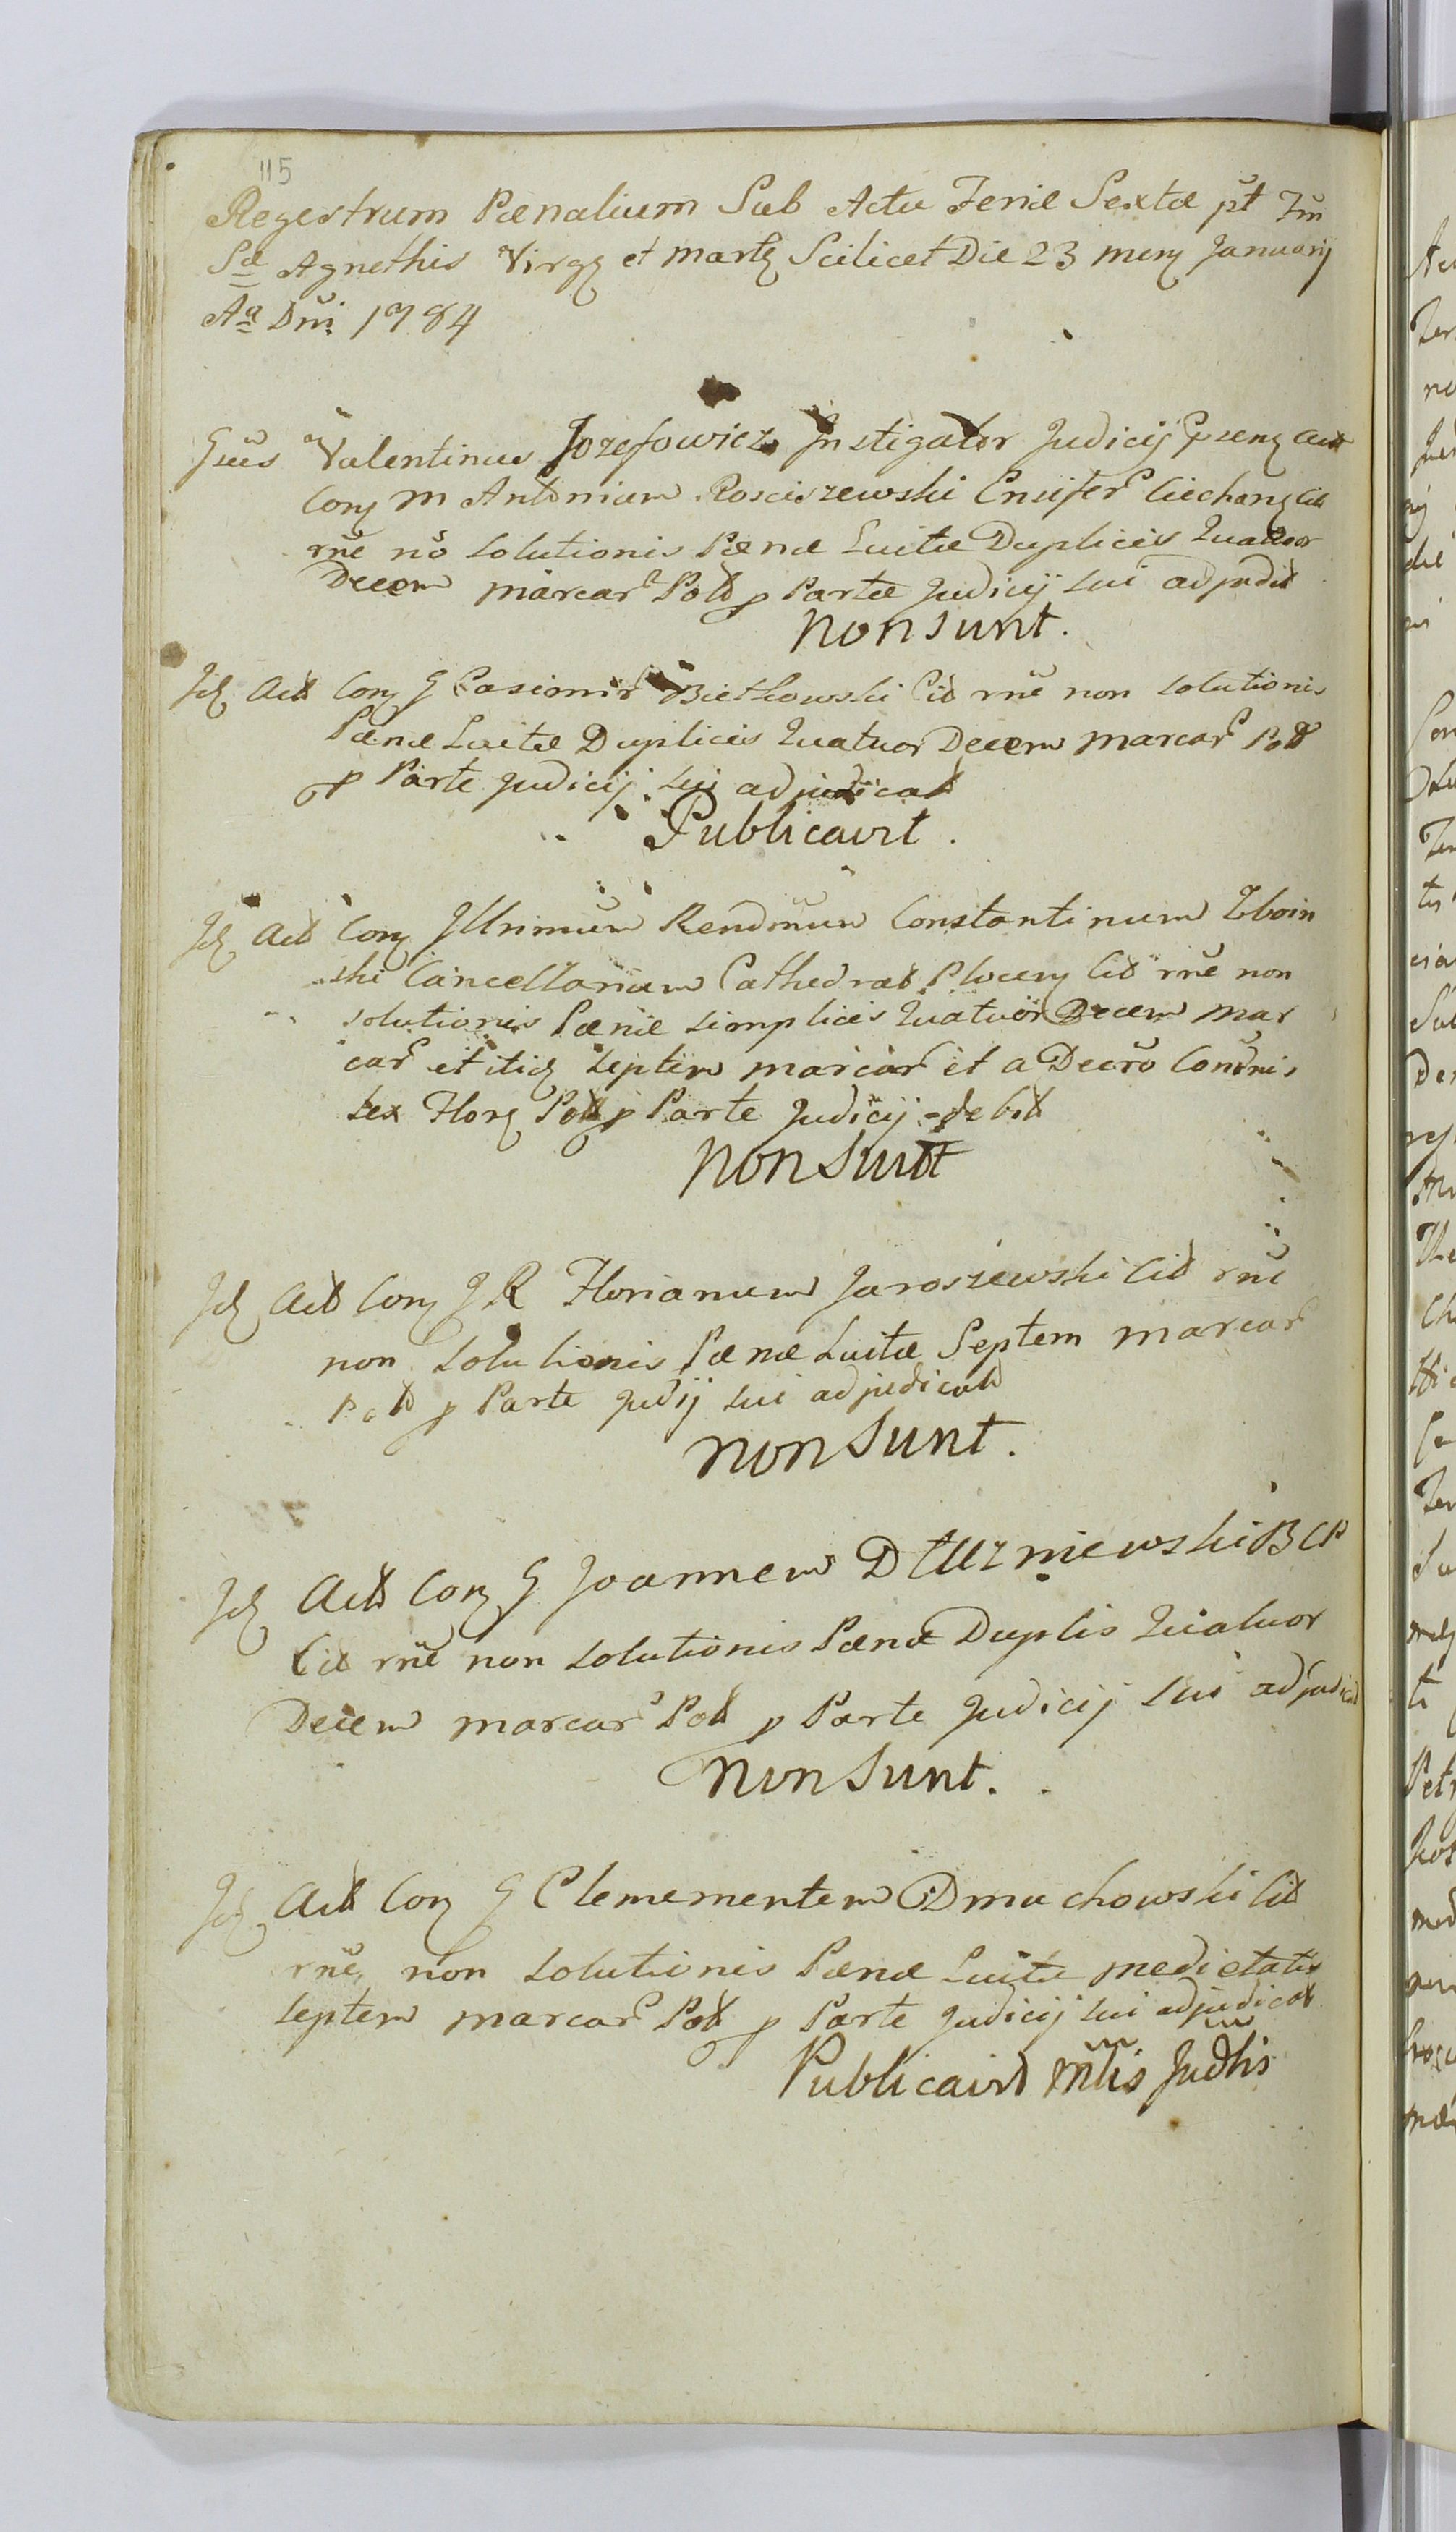 115
Regestrum Pænalium Sub Actu Feriæ Sextæ pt̃ Fm̃
Sæ Agnethis Virgȝ et Martȝ Scilicet Die 23 menȝ Januarij
Aº Dni 1784
Gsus Valentinus Jozefowicz Instigator Judicij Pæsenȝ Act
Conȝ M Antonium Rosciszewski Ensifer Ciechanȝ Cit
rñe nõ solutionis Pænæ Luitæ Duplicis Quatuor
Decem marcar Pol p Parte Judicij sui adjudit
non sunt.
Jdȝ Act Conȝ G Casimir Bietkowski Cit rñe non solutionis
Pænæ Luitæ Duplicis Quatuor Decem marcar Pol
p Parte Judicij sui adjudicat
Publicavit.
Jdȝ Act Conȝ Jllrimum Rendmum Constantinum Zboin
ski Cancellarium Cathedral Plocenȝ Cit rñe non
solutionis Pænæ simplicis Quatuor Decem mar
car et itidȝ septem marcar et a Decro Contnis
sex Florȝ Pol p Parte Judicij debit
non sunt
Jdȝ Act Conȝ J R Florianum Jaroszewski Cit rñe
non solutionis Pænæ Luitæ Septem marcar
Pol p Parte Judij sui adjudicat
non sunt.
Jdȝ Act Conȝ G Joannem Dłuzniewski B C P
Cit rñe non solutionis Pænæ Duplis Quatuor
Decem marcar Pol p Parte Judicij sui adjudic
non sunt.
Jdȝ Act Conȝ G Clemementem Dmuchowski Cit
rñe non solutionis Pænæ Luitæ medietatis
septem marcar Pol p Parte Judicij sui adjudicat
Publicavit Mllis Judlis